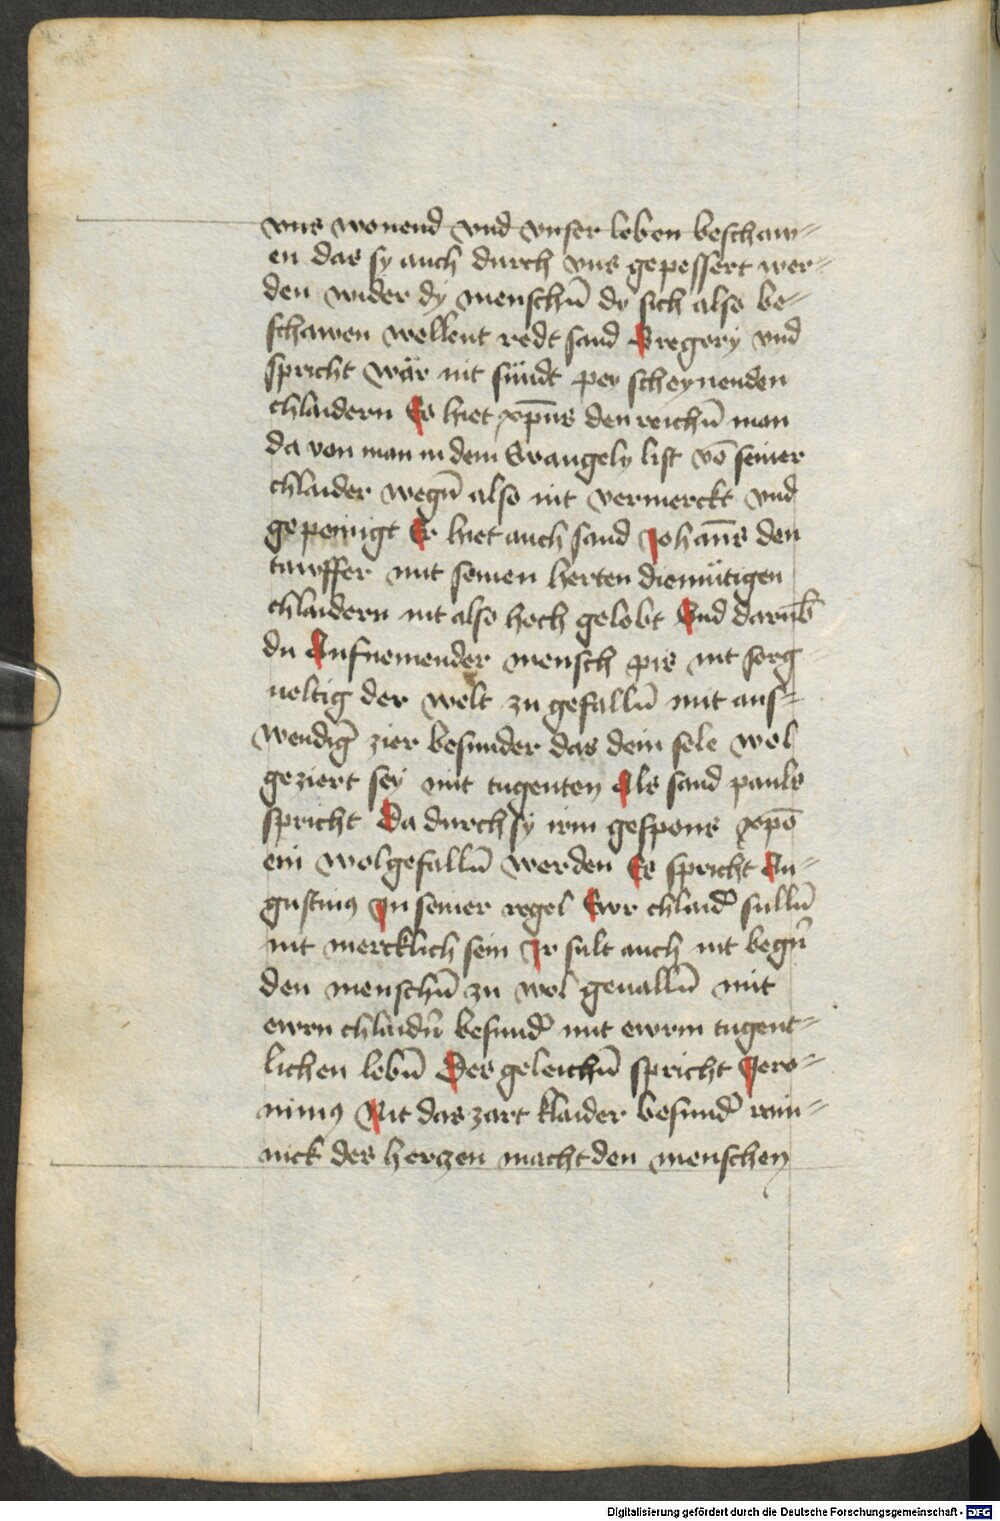 vns wonend vnd vnser leben beschaw⸗
en das sy auch durch vns gepessert wer⸗
den wider dy menschn̄ dy sich also be⸗
schawen wellent redt sand Gregory vnd
spricht wär nit sündt pey scheynenden
chlaidern Es hiet xp̄us den reichn̄ man
da von man in dem Ewangely list vō seiner
chlaider wegn̄ also nit vermerckt vnd
gepeinigt Er hiet auch sand Johan̄s den
tawffer mit seinen herten diemütigen
chlaidern nit also hoch gelobt Vnd darūb
du Aufnemender mensch pis nit sorg
ueltig der welt zu gefalln̄ mit aus⸗
wendiḡ zier besunder das dein sele wol
geziert sey mit tugenten Als sand pauls
spricht Da durch sy irm gespons xp̄o
ein wolgefalln̄ werden Es spricht Au⸗
gustinus In seiner regel Ewr chlaid̄ sulln̄
nit mercklich sein Ir sult auch nit begn̄
den menschn̄ zu wol geualln̄ mit
ewrn chlaidn̄ besund̄ mit ewrm tugent⸗
lichen lebn̄ Des geleichn̄ spricht Jero⸗
nimus Nit das zart klaider besund̄ rain⸗
nick des herczen macht den menschen
Digitalisierung gefördert durch die Deutsche Forschungsgemeinschaft - DFG